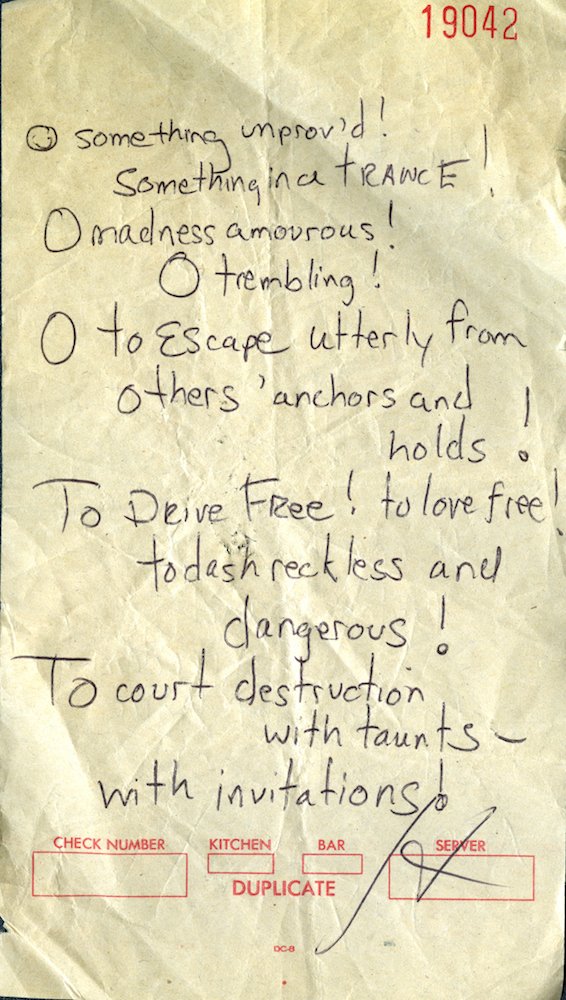 19042
O something unprov'd!
Something in a TRANCE!
O madness amourous!
O trembling!
O to Escape utterly from
others' anchors and
holds!
To DRive FRee! to love free!
to dash reckless and
dangerous!
To court destruction
with taunts –
with invitations!
CHECK NUMBER KITCHEN BAR SERVER
DUPLICATE
DC-8